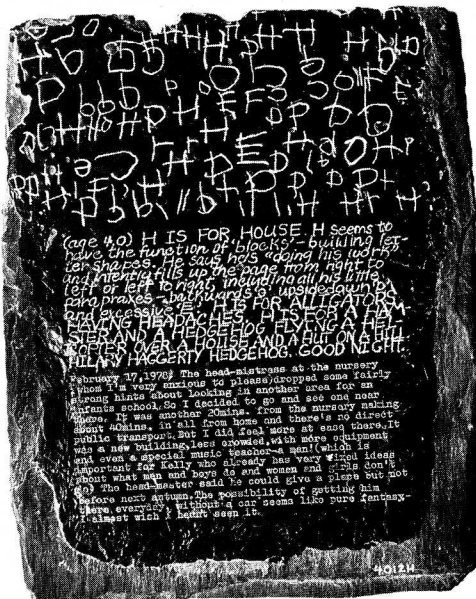 (age 4.0) H IS FOR HOUSE. H seems to
have the function of 'blocks' - building let-
ter shapes. He says he's "doing his work"
and intently fills up the page from right to
left or left to right, including all his little
parapraxes - backwards & upsidedown P's
and excessive E's. H IS FOR ALLIGATORS
HAVING HEADACHES. H IS FOR A HAM-
STER AND A HEDGEHOG FLYING A HELI-
COPTER OVER A HOUSE AND A HUT ON A HILL.
HILARY HAGGERTY HEDGEHOG. GOOD NIGHT.
February 17, 1978. The head-mistress at the nursery
(whom I'm very anxious to please) dropped some fairly
strong hints about looking in another area for an
infants school. So I decided to go and see one near
there. It was another 20mins. from the nursery making
about 40mins. in all from home and there's no direct
public transport. But I did feel more at ease there. It
was a new building, less crowded, with more equipment
and even a special music teacher - a man! (which is
important for Kelly who already has very fixed ideas
about what men and boys do and women and girls don't
do) The head-master said he could give a place but not
before next autumn. The possibility of getting him
there everyday, without a car seems like pure fantasy.
I almost wish I hadn't seen it.
4.012H